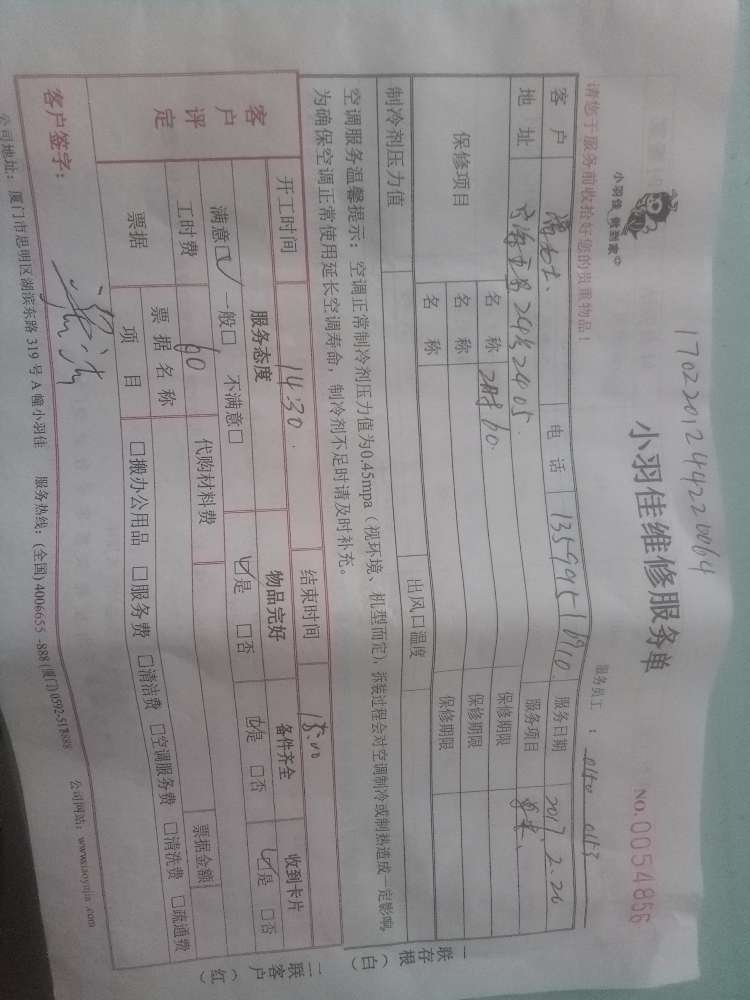 1702201244220064
小羽佳维修服务单
小羽佳 做到家
服务员工：
NO.0054866
请您于服务前收拾好您的贵重物品！
客户 电话 服务日期 2017.2.26
地址 24号2405 服务项目
保修项目 名称 60 保修期限
名称 保修期限
名称 保修期限
制冷剂压力值 出风口温度
空调服务温馨提示：空调正常制冷剂压力值为0.45mpa（视环境、机型而定），拆装过程会对空调制冷或制热造成一定影响
为确保空调正常使用延长空调寿命，制冷剂不足时请及时补充。
一联存根（白）
二联客户（红）
开工时间 14:30 结束时间 15:00
客户评定 服务态度 物品完好 备件齐全 收到卡片
满意☑ 一般□ 不满意□ ☑是 □否 ☑是 □否 ☑是 □否
工时费 60 代购材料费 票据金额
票据 票据名称
项目 □搬办公用品 □服务费 □清洁费 □空调服务费 □清洗费 □疏通费
客户签字：
公司地址：厦门市思明区湖滨东路319号A幢小羽佳 服务热线：(全国)4006655-888(厦门)
公司网站：www.xiaoyujia.com